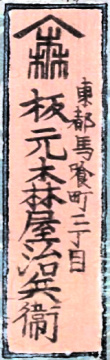 森
東都馬喰町二丁目
板元森屋治兵衛